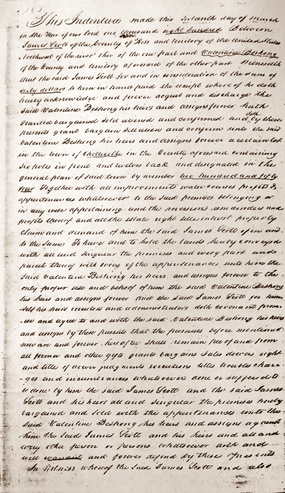 This Indenture made this fifteenth day of March
in the Year of our lord one thousand eight hundred & eleven
James Scott of the County of Ross and territory of the United States
Northwest of the river Ohio of the one part and Valentine Beshong
of the County and territory aforesaid of the other part Witnesseth
that the said James Scott for and in consideration of the sum of
sixty dollars to him in hand paid the receipt where of he doth
hereby acknowledge and forever acquit and discharge the
said Valentine Beshong his heirs and assigns forever hath
granted bargained sold aliened and confirmed and by these
presents grant bargain sell alien and confirm unto the said
Valentine Beshong his heirs and assigns forever a certain lot
in the town of Chillicothe in the County aforesaid containing
six poles in front and twelve back and designated in the
general plan of said town by number two hundred and fifty
four Together with all improvements water courses profits &
appurtenances whatsoever to the said premises belonging or
in any wise appertaining and the reversions remainders and
profits thereof and all the estate right title interest property
claim and demand of him the said James Scott of in and
to the same To have and to hold the lands hereby conveyed
with all and singular the premises and every part and
parcel thereof with every of the appurtenances unto him the
said Valentine Beshong his heirs and assigns forever to the
only proper use and behoof of him the said Valentine Beshong
his heirs and assigns forever And the said James Scott for him
self his heirs executors and administrators doth covenant prom
ise and agree to and with the said Valentine Beshong his heirs
and assigns by these presents that the premises before mentioned
now are and forever hereafter shall remain free of and from
all former and other gifts grants bargains sales dower right
and title of dower judgments executions titles troubles charg
es and incumbrances whatsoever done or suffered
to be done by him the said James Scott and the said James
Scott and his heirs all and singular the premises hereby
bargained and sold with the appurtenances unto the
said Valentine Beshong his heirs and assigns against
him the said James Scott and his heirs and all and
every other person or persons whatsoever doth and
will warrant and forever defend by these Presents
In Witness whereof the said James Scott and also